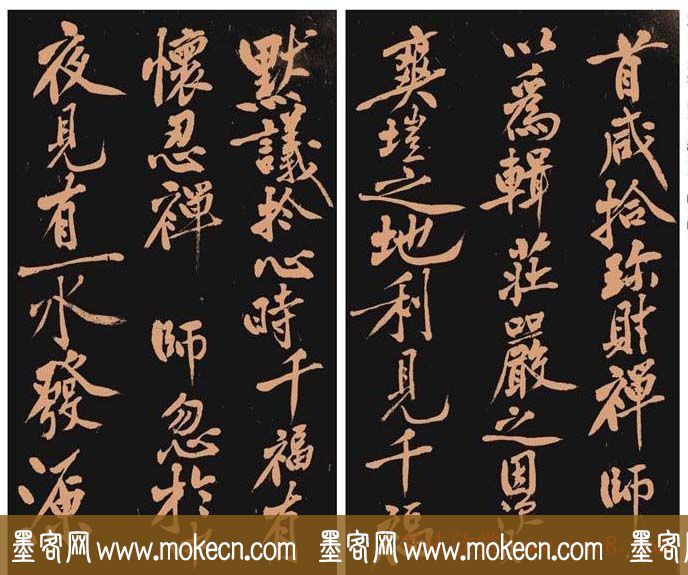 首咸捨珍財禪師
以為輯莊嚴之因資
爽塏之地利見千福
默議於心時千福有
懷忍禪師忽於中
夜見有一水發源
墨客网 www.mokecn.com 墨客网 www.mokecn.com